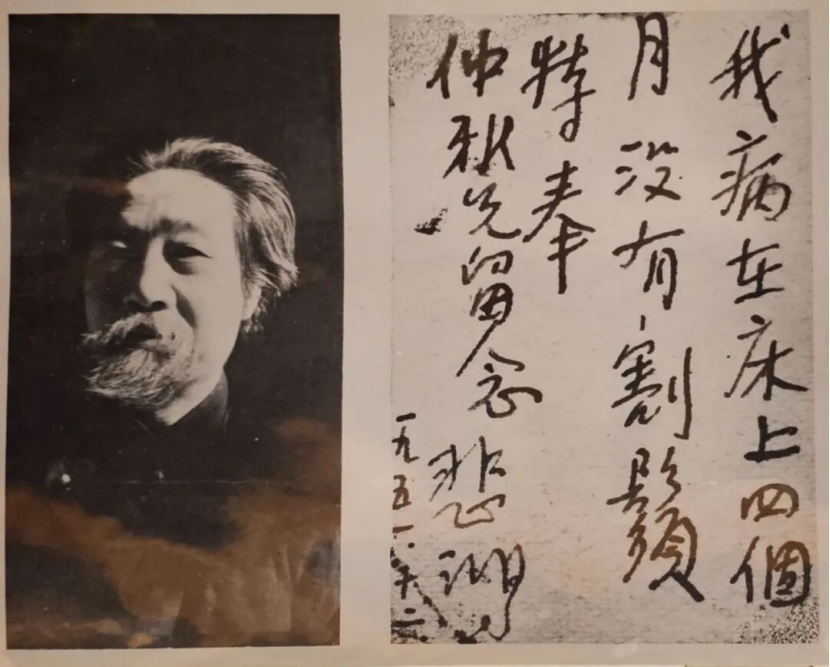 我病在床上四個
月没有割鬚
特奉
仲 兄留念 悲鴻
一九五一.十二